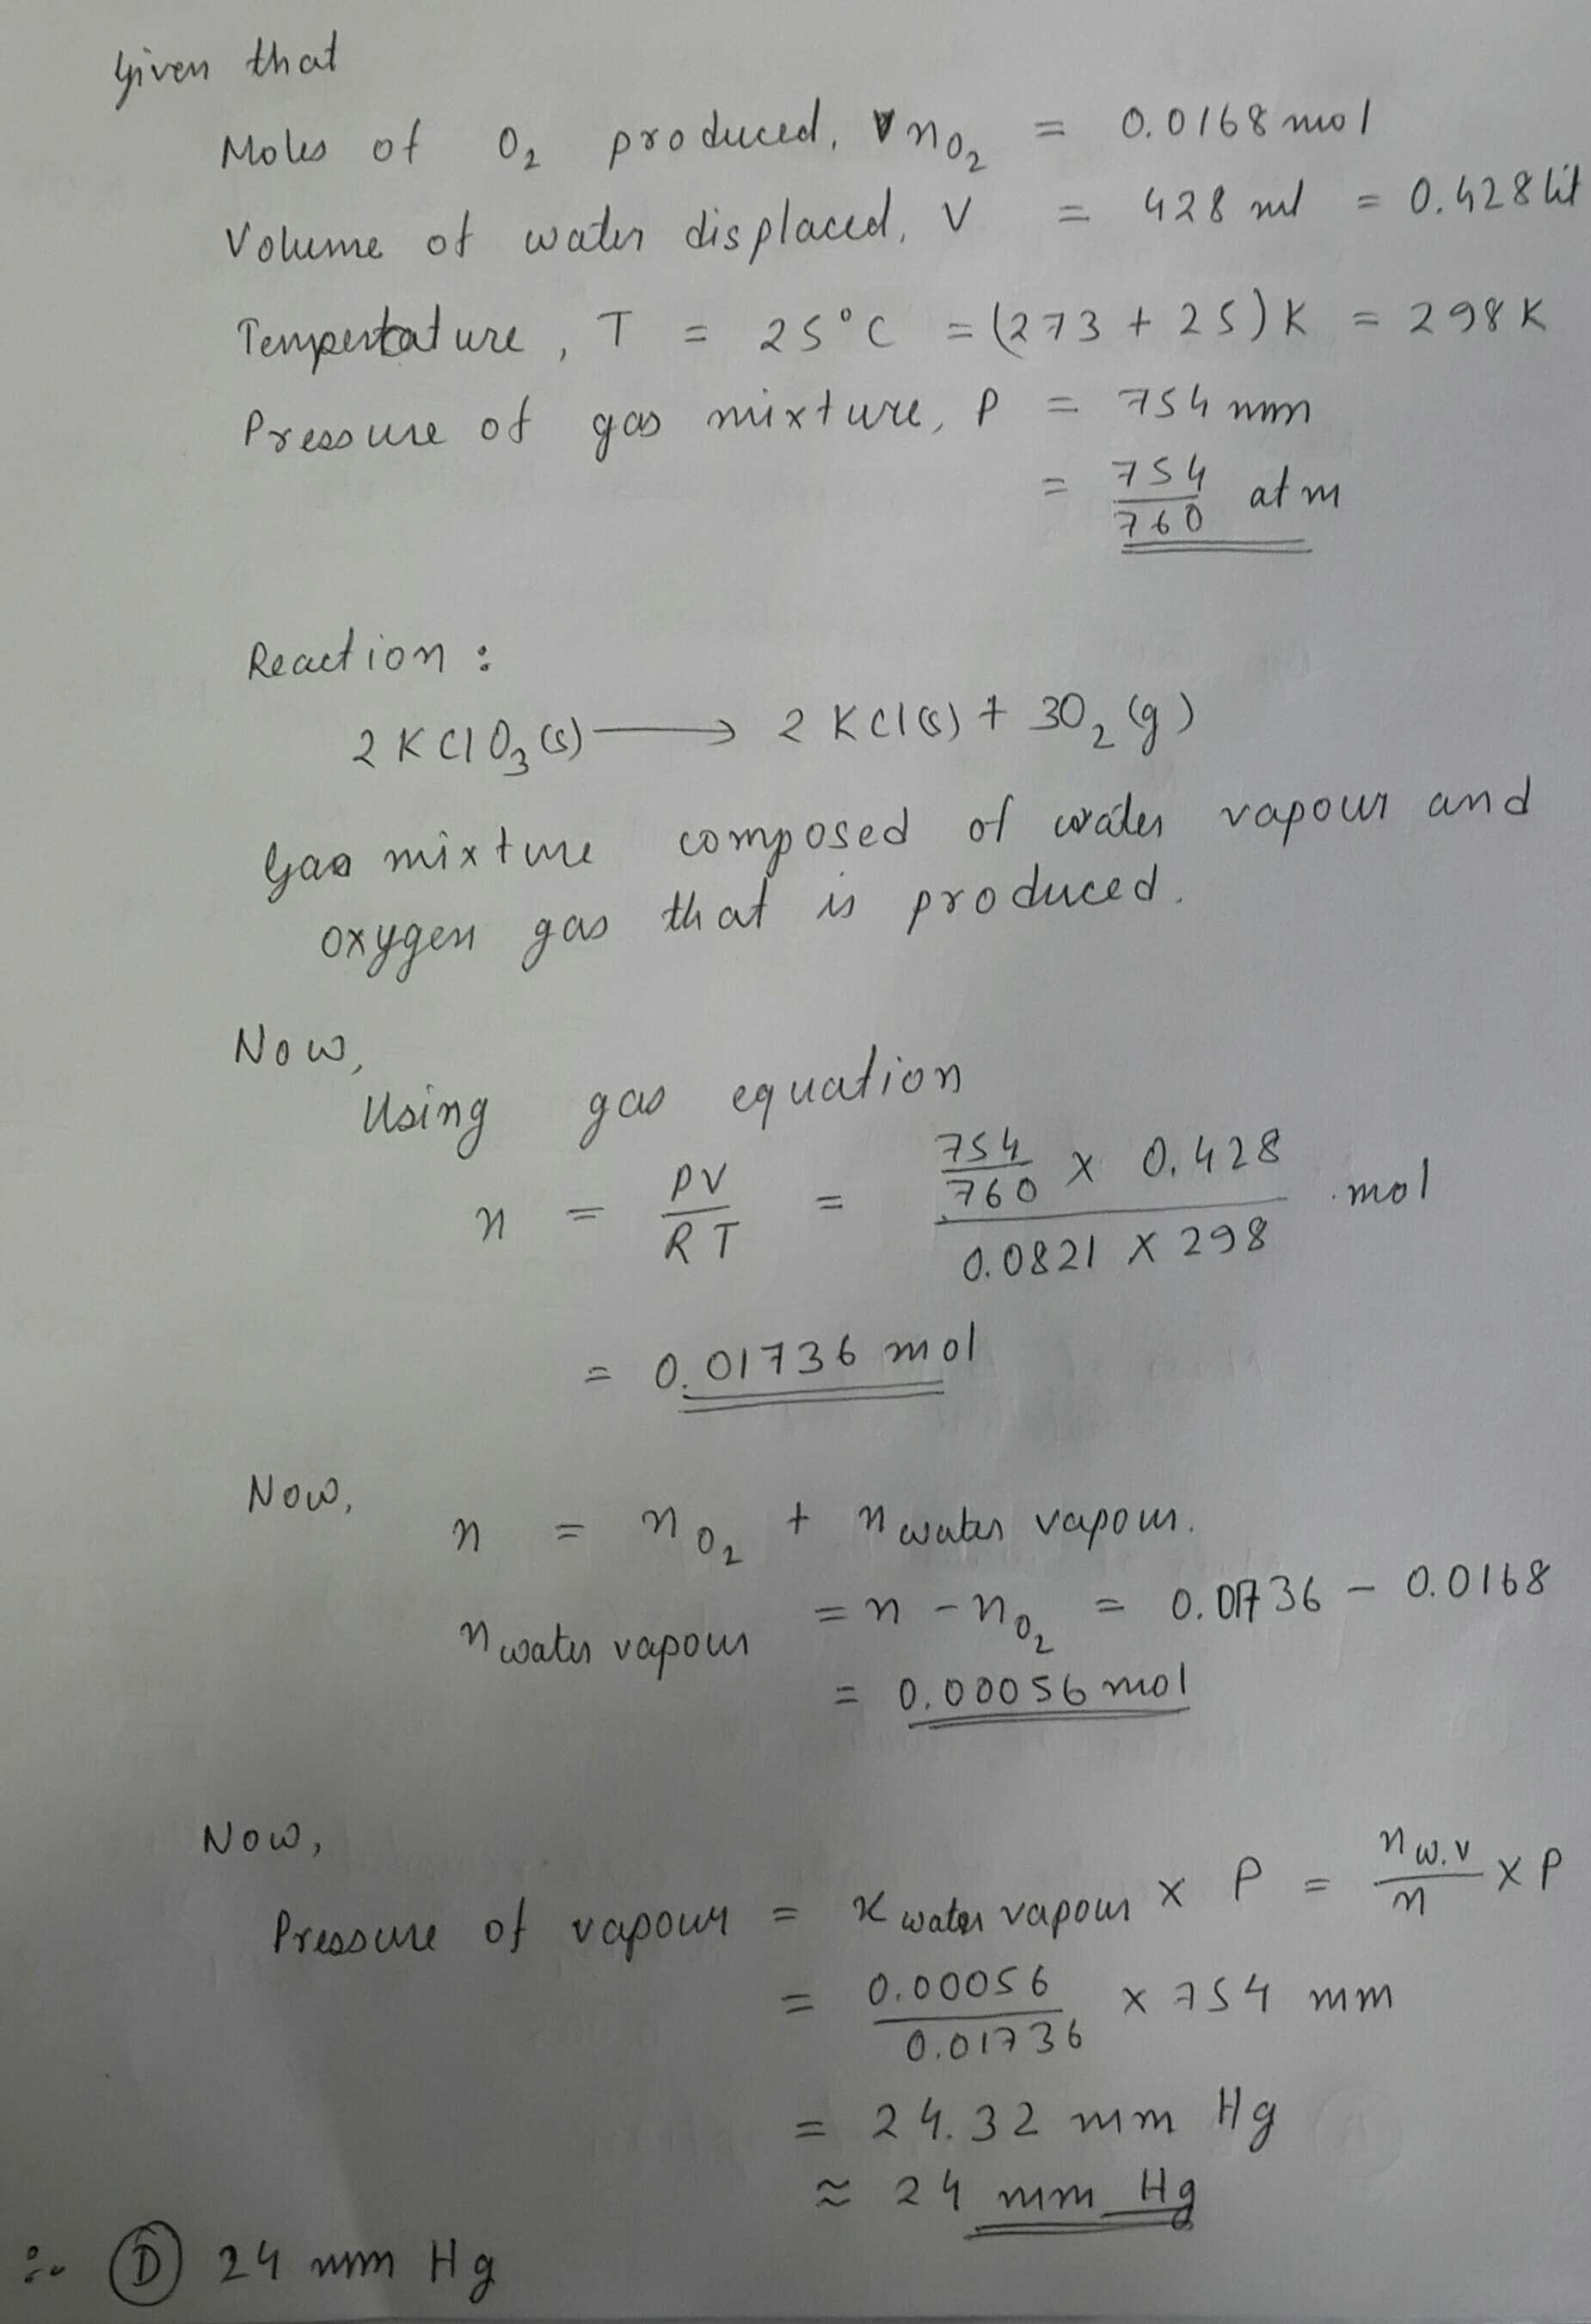 Given that
Moles of O₂ produced, n O₂ = 0.0168 mol
Volume of water displaced, V = 428 ml = 0.428 lit
Temperature, T = 25°C = (273 + 25) K = 298 K
Pressure of gas mixture, P = 754 mm
= 754/760 atm
Reaction :
2 KClO₃(s) ⟶ 2 KCl(s) + 3O₂(g)
Gas mixture composed of water vapour and
oxygen gas that is produced.
Now,
Using gas equation
n = PV/RT = (754/760 × 0.428)/(0.0821 × 298) mol
= 0.01736 mol
Now,
n = n O₂ + n water vapour.
n water vapour = n - n O₂ = 0.01736 - 0.0168
= 0.00056 mol
Now,
Pressure of vapour = x water vapour × P = n w.v/n × P
= 0.00056/0.01736 × 754 mm
= 24.32 mm Hg
≈ 24 mm Hg
∴ (D) 24 mm Hg